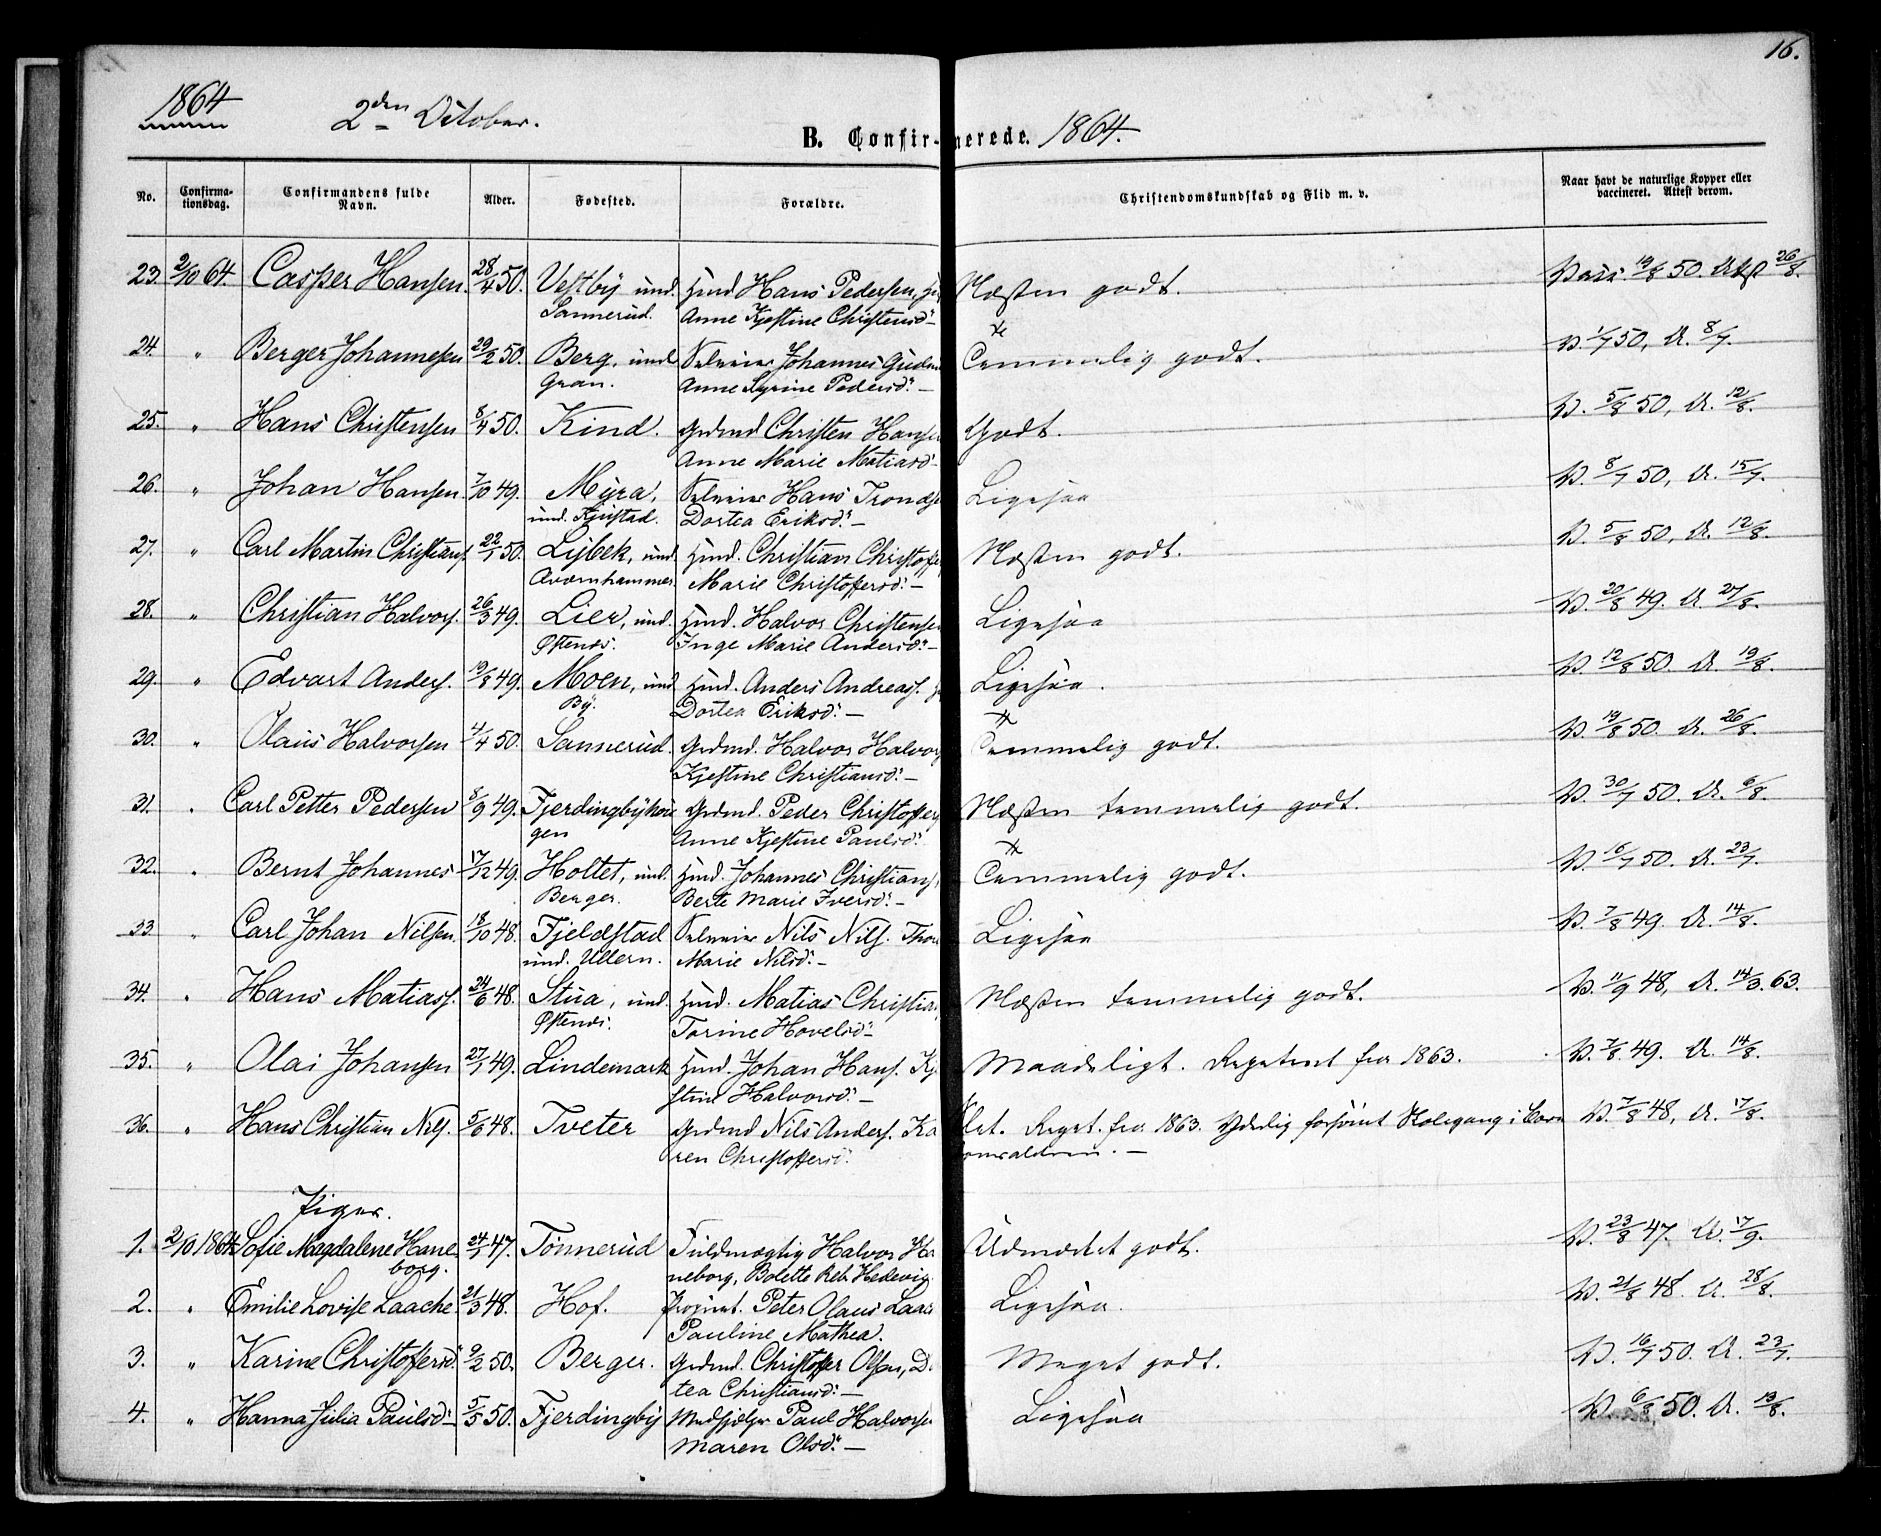 16.
1864
2den October.
B. Confir- merede. 1864.
No. Confirma-tionsdag. Confirmandens fulde Navn. Alder. Fødested. Forældre. Christendomskundskab og Flid m. v. Naar havt de naturlige Kopper eller vaccineret. Attest derom.
23. 2/10 64. Casper Hansen. 28/4 50. Vestby und. Hmd Hans Pedersen, Næsten godt. Vacc. 19/8 50. Atst 26/8.
Sannerud. Anne Kjestine Christensd:
24. " Berger Johannesen 29/2 50. Berg, und Selveier Johannes Temmelig godt. V. 1/7 50, A. 8/7.
Gran. Anne Syrine Pedersd:
25. " Hans Christensen 8/4 50. Kind. Grdmd Christen Hanse Godt. V. 5/8 50, A. 12/8.
Anne Marie Matiasd
26. " Johan Hansen 7/10 49. Myra, Selveier Hans Tronds Ligesaa V. 8/7 50, A. 15/7.
und. Kjustad. Dortea Eriksd:
27. " Carl Martin Christians. 22/1 50. Lybek, und. Hmd. Christian Christoffe Næsten godt. V. 5/8 50, A. 12/8.
Aværnhammer Marie Christoffersd:
28. " Christian Halvors. 26/3 49. Lier, und. Hmd. Halvor Christense Ligesaa V. 20/8 49. A. 27/8.
Østends. Inge Marie Andersd:
29. " Edvart Anders. 19/8 49. Moen, und Hmd. Anders Andreas. Ligesaa. V. 12/8 50. A. 19/8.
By. Dortea Eriksd:
30. " Olaus Halvorsen 4/4 50. Sannerud. Grdmd. Halvor Halvor Temmelig godt. V. 19/8 50. A. 26/8.
Kjestine Christiansd:
31. " Carl Petter Pedersen 8/9 49. Fjerdingbyhau Grdmd. Peder Christoffer Næsten temmelig godt. V. 30/7 50. A. 6/8.
gen Anne Kjestine Paulsd:
32. " Bernt Johannes 17/12 49. Holtet, und. Hmd. Johannes Christians, Temmelig godt. V. 16/7 50. A. 23/7.
Berger. Berte Marie Iversd:
33 " Carl Johan Nilsen 18/10 48. Fjeldstad Selveier Nils Nils. Ligesaa V. 7/8 49. A. 14/8.
und. Ullern. Marie Nilsd:
34. " Hans Matiass. 24/6 48. Stua, und Hmd. Matias Christia Næsten temmelig godt. V. 11/9 48, A. 14/3. 63.
Østends. Torine Hovelsd:
35. " Olai Johansen 27/1 49. Lindemark Hmd. Johan Hans. Kj Maadeligt. Repetent fra 1863. V. 7/8 49. A. 14/8.
stine Halvorsd:
36. " Hans Christian Nils. 5/6 48. Tveter Grdmd Nils Anders. Ka Slet. Repet. fra 1863. Yderlig forsømt Skolegang i Barn V. 7/8 48, A. 17/8.
ren Christoffersd: omsalderen.
Piger.
1. 2/10 1864 Sofie Magdalene Hane 24/1 47. Tønnerud Fuldmægtig Halvor Ha Udmærket godt. V. 23/8 47. A. 17/9.
borg. neborg, Bolette Reb. Hedevig.
2. " Emilie Lovise Laache 21/3 48. Hof. Propriet. Peter Olaus Laac Ligesaa. V. 21/8 48. A. 28/8.
Pauline Mathea.
3. " Karine Christoffersd: 9/2 50. Berger. Grdmd. Christoffer Olsen, D Meget godt. V. 16/7 50. A. 23/7.
tea Christiansd:
4. " Hanna Julia Paulsd: 5/5 50. Fjerdingby Medhjelper Paul Halvorse Ligesaa V. 6/8 50. A. 13/8.
Maren Olsd: